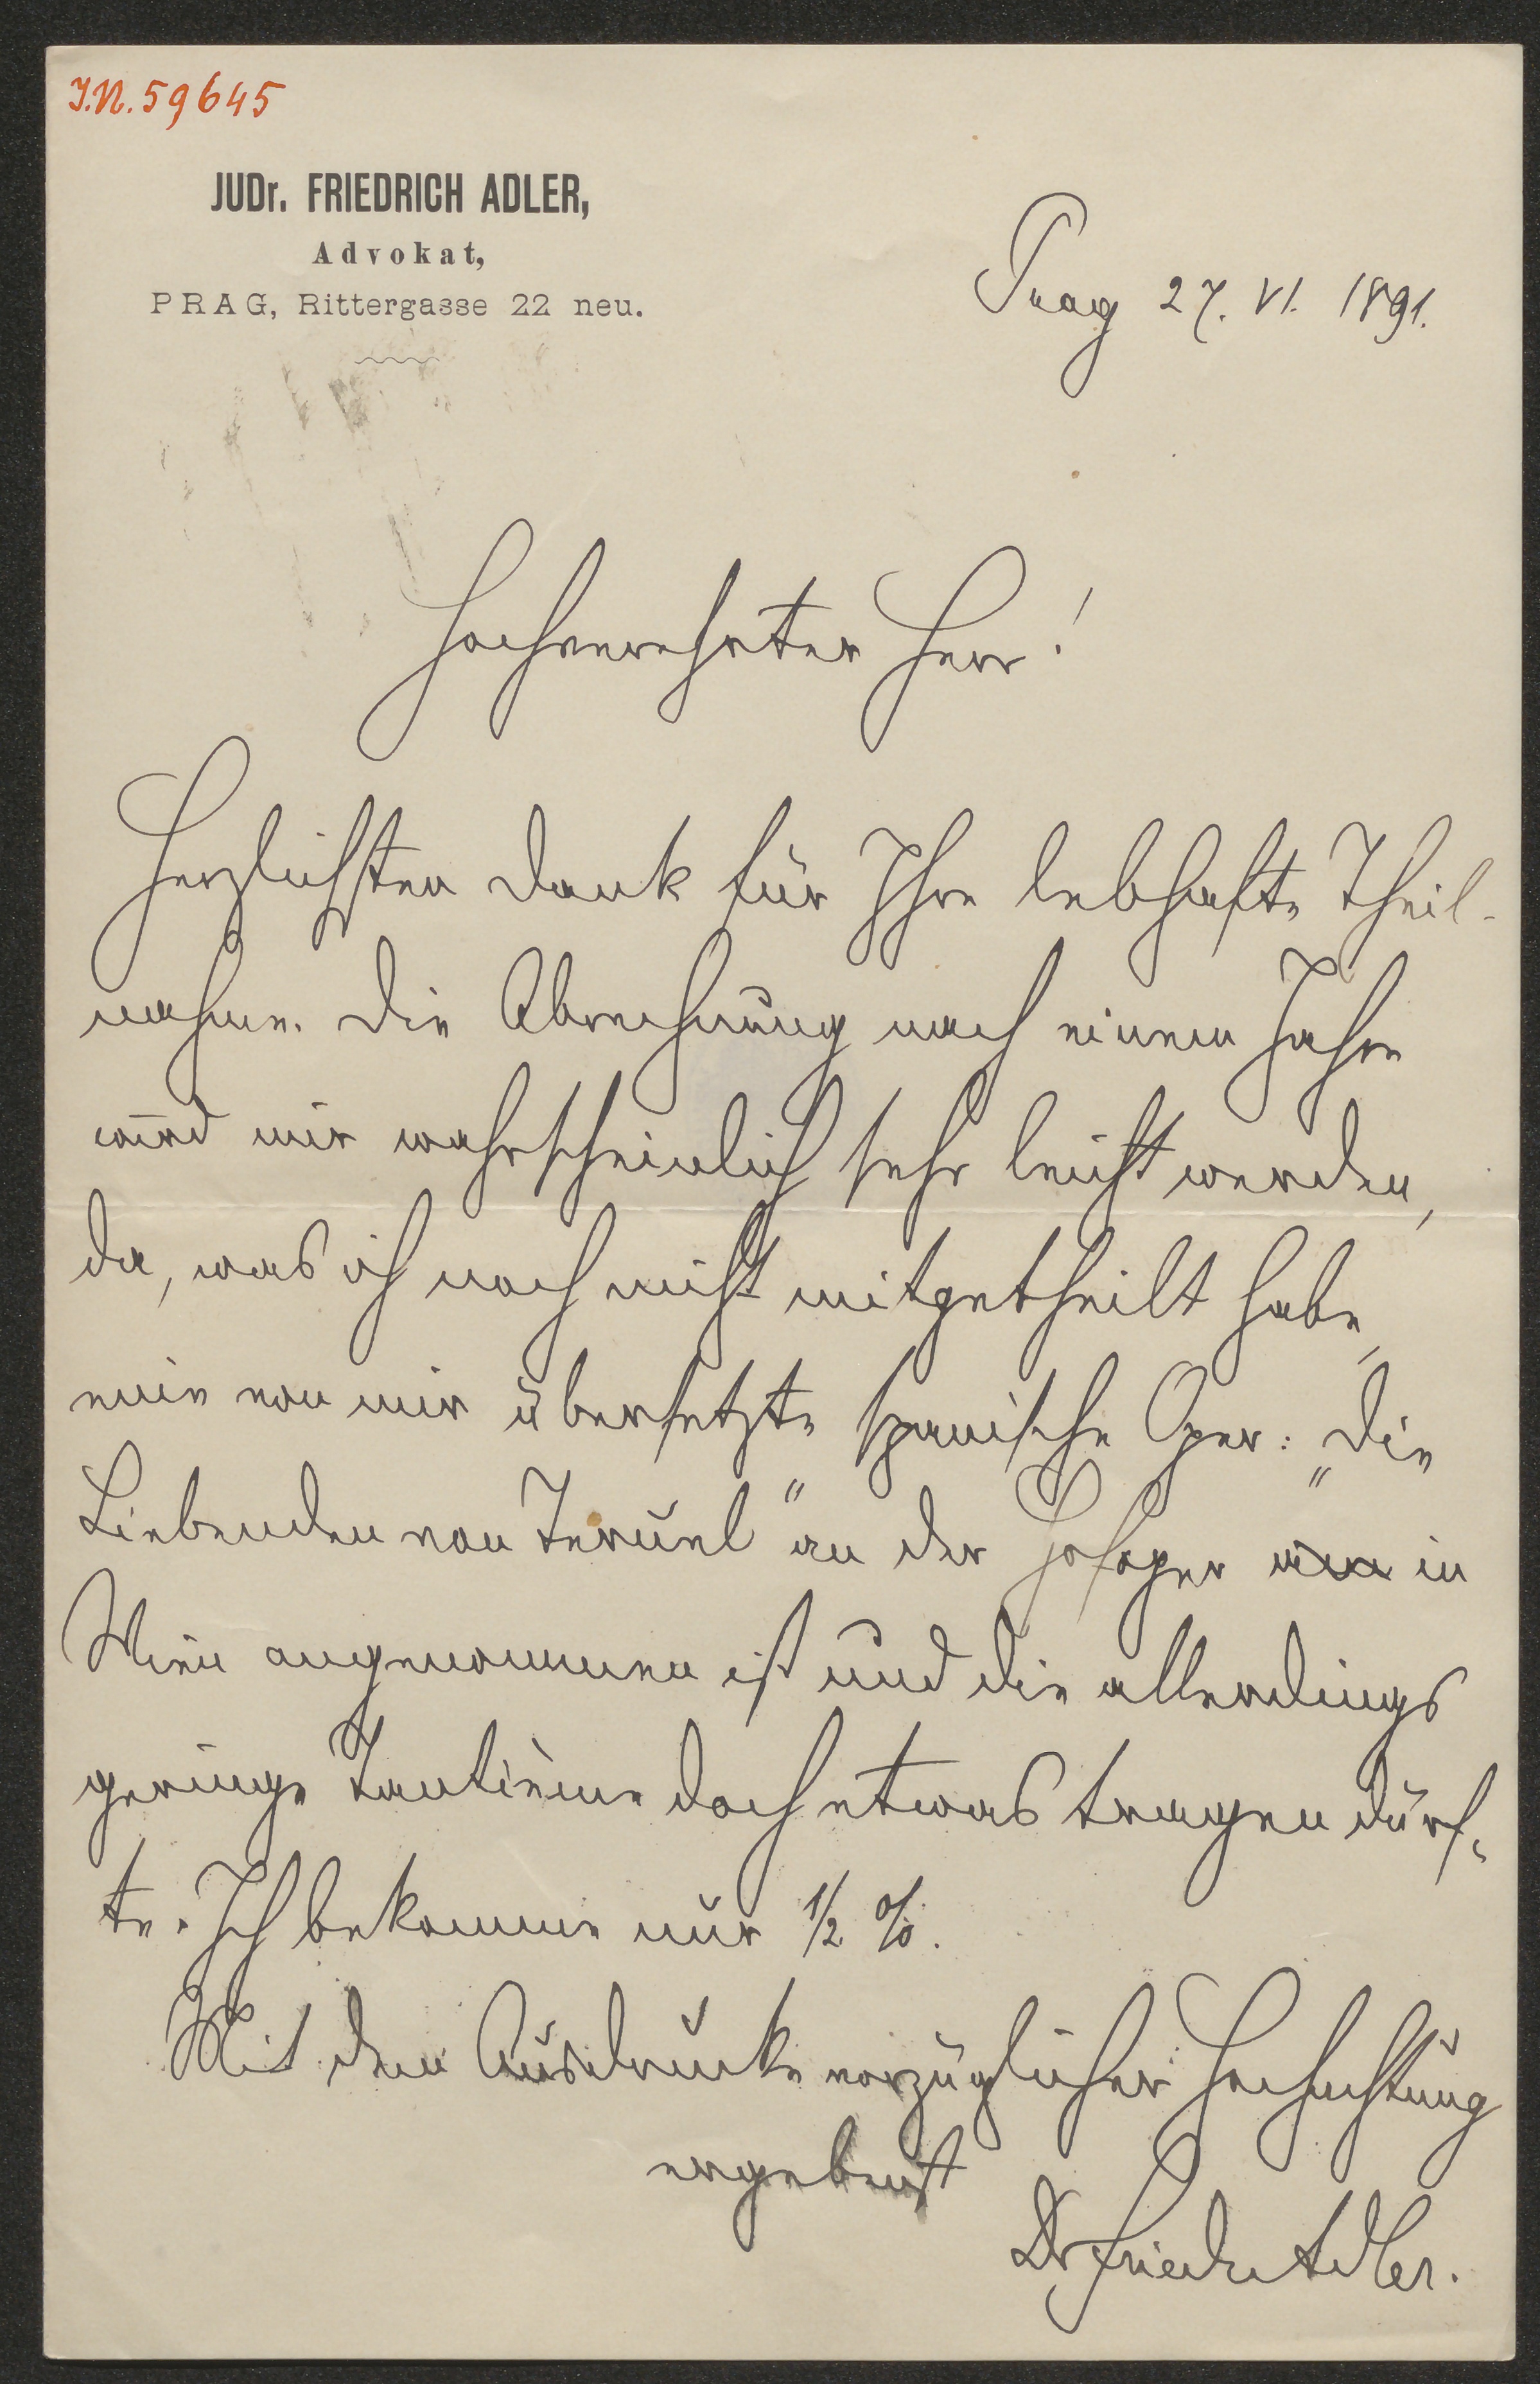 I.N. 59645
JUDr. FRIEDRICH ADLER,
Advokat,
PRAG, Rittergasse 22 neu.
Prag 27. VI. 1891.
Hochverehrter Herr!
Herzlichsten Dank für Ihre lebhafte Theil-
nahme. Die Abrechnung nach einem Jahre
wird mir wahrscheinlich sehr leicht werden,
da, was ich noch nicht mitgetheilt habe,
eine von mir übersetzte spanische Oper: „Die
Liebenden von Teruel" an der Hofoper in
Wien angenommen ist und die allerdings
geringe Tantième doch etwas tragen dürf-
te. Ich bekomme nur 1/2 %.
Mit dem Ausdrucke vorzüglicher Hochachtung
ergebenst
Dr Friedr Adler.